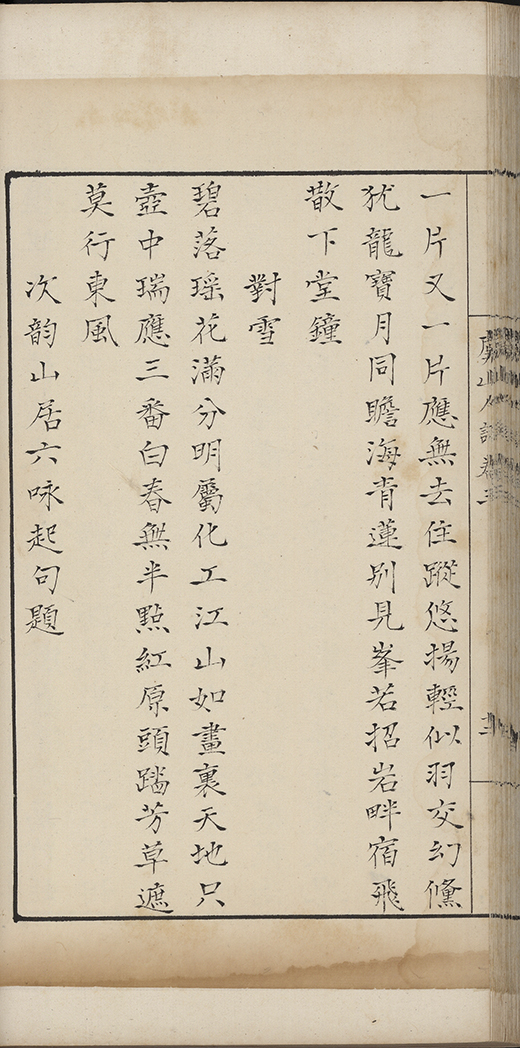 一片又一片應無去住蹤悠揚輕似羽交幻儵
犹龍寶月同瞻海青蓮别見峯若招岩畔宿飛
散下堂鐘
對雪
碧落瑶花滿分明屬化工江山如畫裏天地只
壺中瑞應三番白春無半點紅原頭踏芳草遮
莫行東風
次韵山居六咏起句題